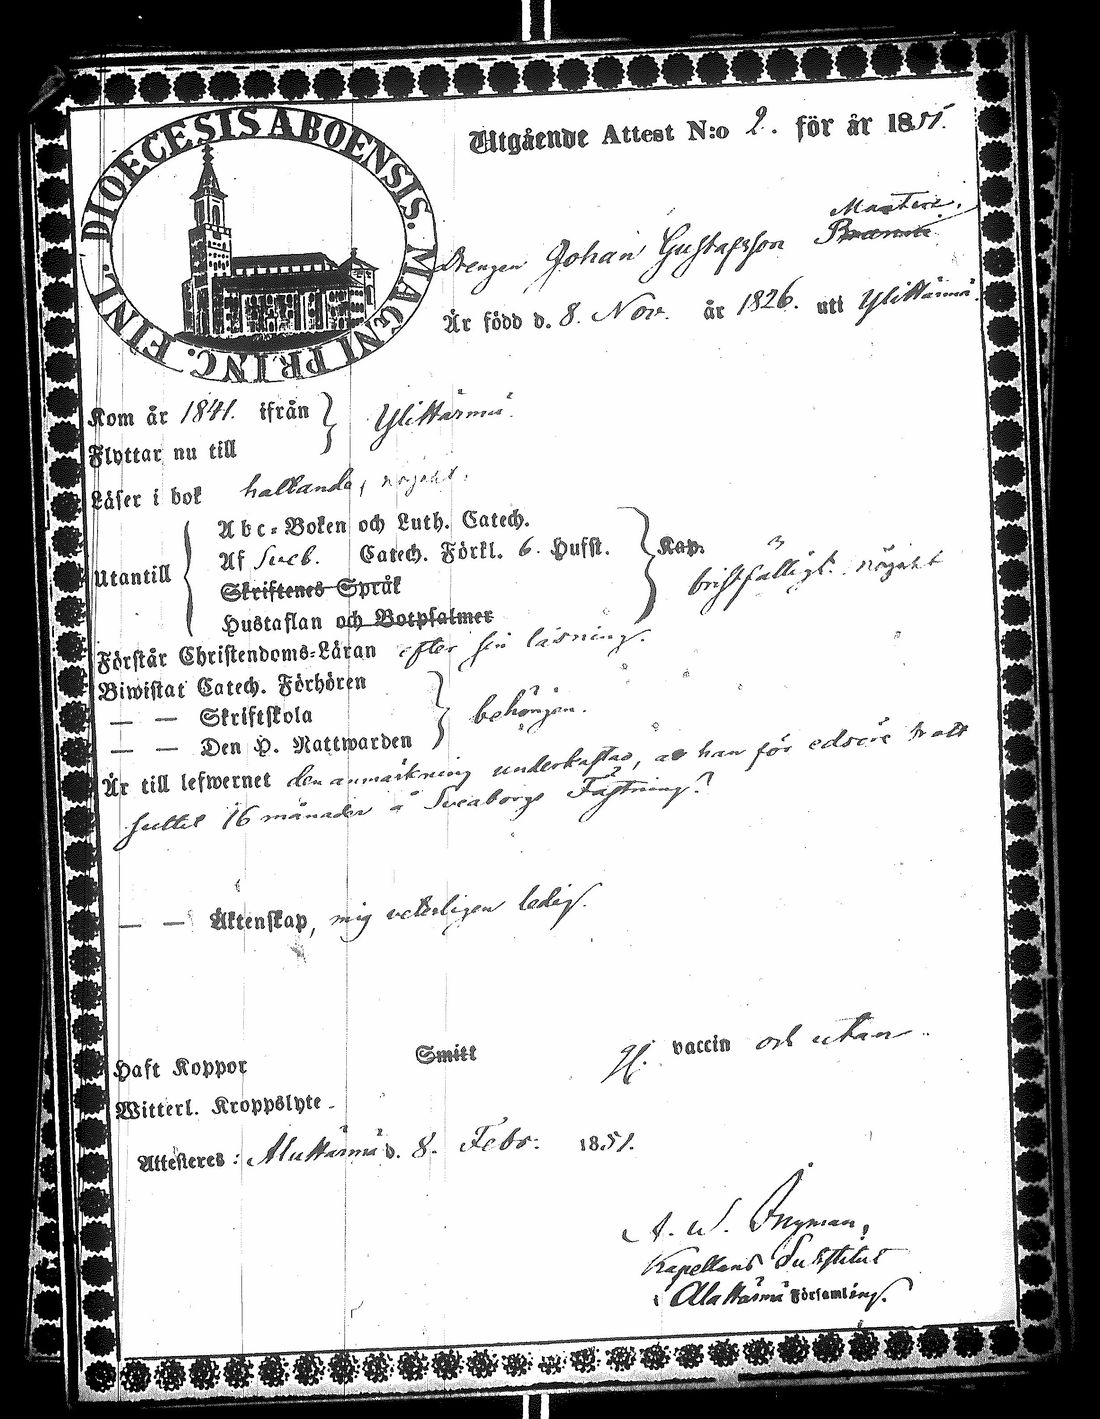 DIOECESIS ABOENSIS. MAGNI PRINC. FINL.
Utgående Attest N:o 2. för år 1851.
Drengen Johan Gustafsson
Är född d. 8. Nov. år 1826. uti Ylihärmä.
Kom år 1841. ifrån } Ylihärmä.
Flyttar nu till
Läser i bok hallande, nöjakt.
Utantill { Abc-Boken och Luth. Catech.
Af Sveb. Catech. Förkl. 6. Hufst. } Kap.
bristfälligt. nöjakt
Skriftenes Språk
Hustaflan och Botpsalmer
Förstår Christendoms-Läran efter sin läsning.
Biwistat Catech. Förhören
— — Skriftskola } behörigen.
— — Den H. Nattwarden
Är till lefwernet den anmärkning underkastad, at han för edsöre brott
suttit 16 månader å Sveaborgs Fästning.
— — Äktenskap, mig veterligen ledig.
Haft Koppor Smitt H. vaccin och utan
Witterl. Kroppslyte -
Attesteres: Alahärmä d. 8. Febr: 1851.
A. W. Ingman,
Kapellans Substitut
i Alahärmä Församling.